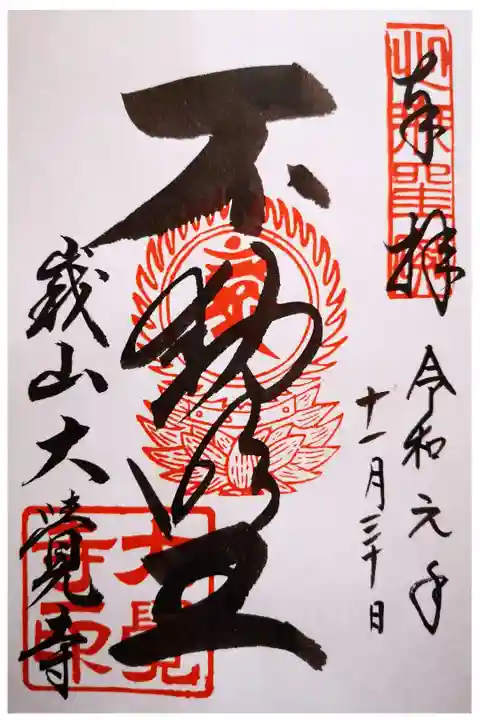 奉拝
令和元年
十一月三十日
不動明王
峩山大覺寺
大覺
寺印